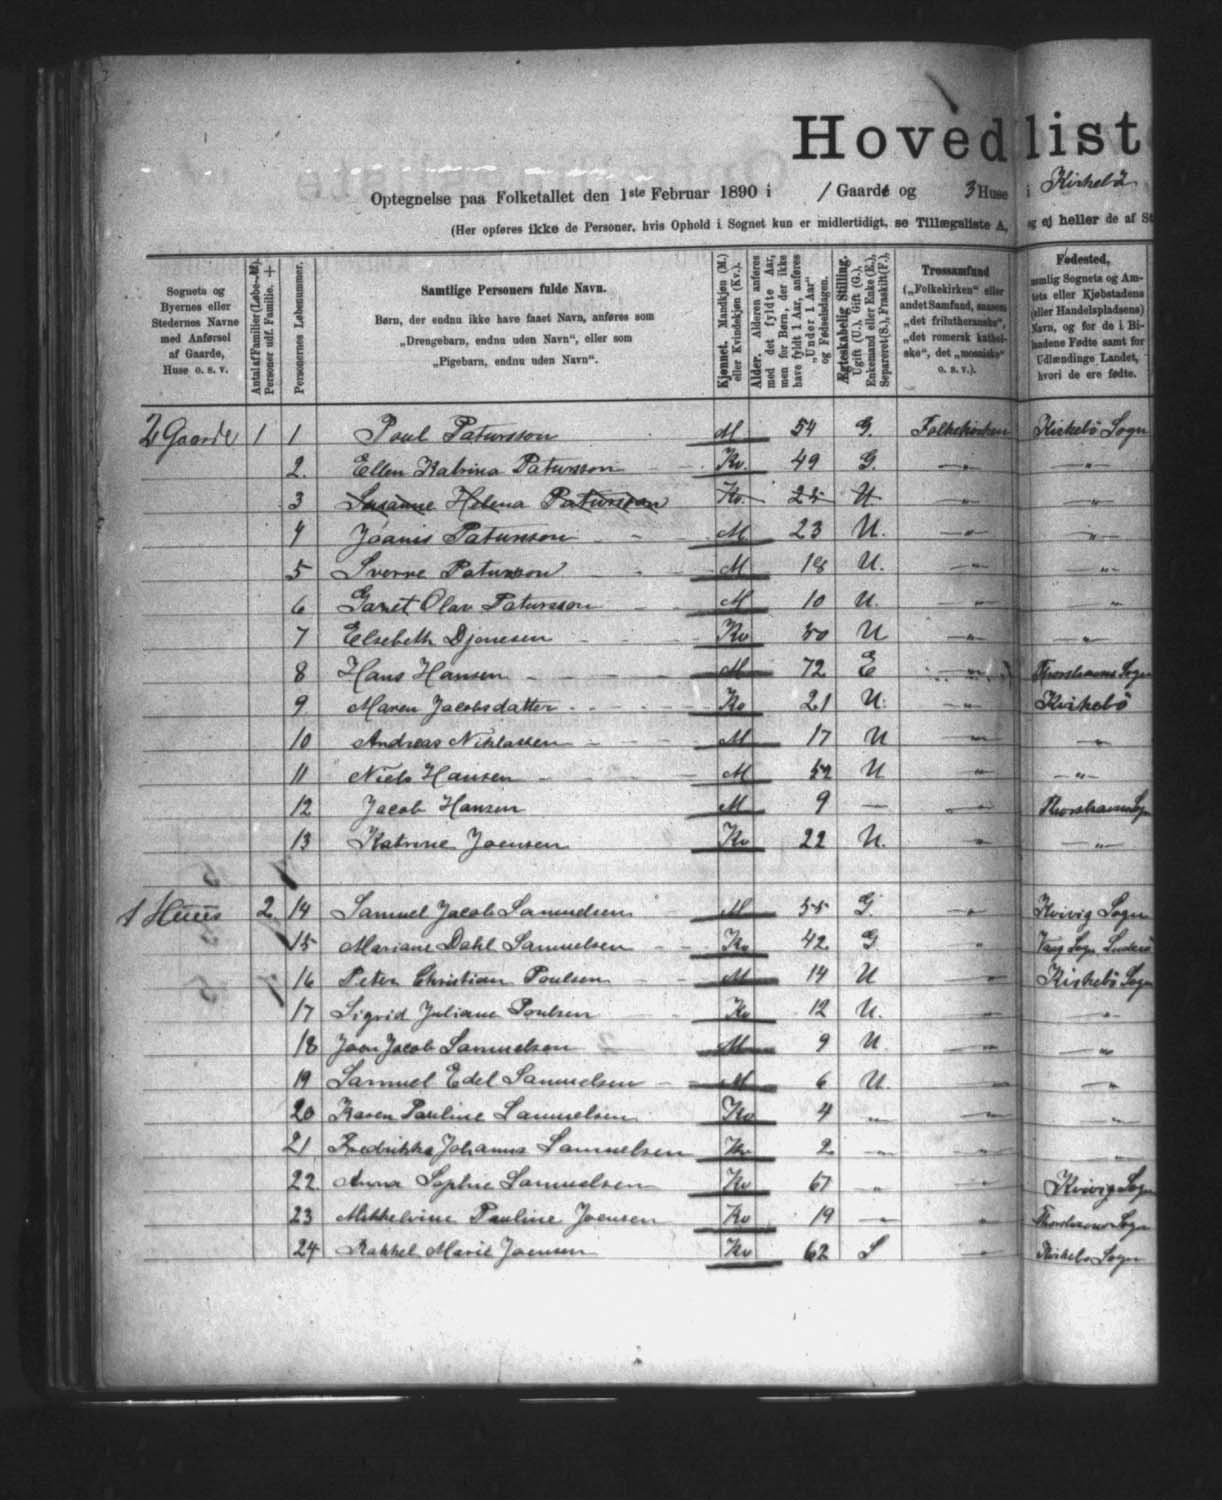 Hovedlist
Optegnelse paa Folketallet den 1ste Februar 1890 i 1 Gaarde og 3 Huse i Kirkebö
(Her opføres ikke de Personer, hvis Ophold i Sognet kun er midlertidigt, se Tillægsliste A, og ej heller de af St
Sognets og Byernes eller Stedernes Navne med Anførsel af Gaarde, Huse o. s. v.
Antal af Familier (Løbe-№). Personer udf. Familie. +
Personernes Løbenummer.
Samtlige Personers fulde Navn.
Børn, der endnu ikke have faaet Navn, anføres som
„Drengebarn, endnu uden Navn“, eller som
„Pigebarn, endnu uden Navn“.
Kjønnet. Mandkjøn (M.) eller Kvindekjøn (Kv.).
Alder. Alderen anføres med det fyldte Aar, men for Børn, der ikke have fyldt 1 Aar, anføres „Under 1 Aar“ og Fødselsdagen.
Ægteskabelig Stilling. Ugift (U.), Gift (G.), Enkemand eller Enke (E.), Separeret (S.), Fraskilt (F.),
Trossamfund („Folkekirken“ eller andet Samfund, saasom „det frilutheranske“, „det romersk katholske“, det „mosaiske“ o. s. v.).
Fødested, nemlig Sognets og Amtets eller Kjøbstadens (eller Handelspladsens) Navn, og for de i Bilandene Fødte samt for Udlændinge Landet, hvori de ere fødte.
2 Gaarde 1 1 Poul Patursson M 54 G. Folkekirken Kirkebö Sogn
2. Ellen Katrina Patursson Kv. 49 G. — „ — — „ —
3 Susanne Helena Patursson Kv. 25 U — „ — — „ —
4 Jóanis Patursson M 23 U. — „ — — „ —
5 Sverre Patursson M 18 U. — „ — — „ —
6 Olav Patursson M 10 U. — „ — „
7 Elsebeth Djonesen Kv U — „ — — „ —
8 Hans Hansen M 72 E — „ — Thorshavns Sogn
9 Maren Jacobsdatter Kv 21 U. — „ — Kirkebö
10 Andreas Niklassen M 17 U — „ — — „ —
11 Niels Hansen M 52 U — „ — — „ —
12 Jacob Hansen M 9 — — „ — Thorshavns Sogn
13 Katrine Joensen Kv 22 U. — „ — — „ —
1 Huus 2 14 Samuel Jacob Samuelsen M 55 G. — „ — Kvivig Sogn
15 Mariane Dahl Samuelsen Kv 42 G „ Vaag Sogn
16 Peter Christian Poulsen M 14 U — „ — Kirkebö Sogn
17 Sigrid Juliane Poulsen Kv 12 U. — „ — — „ —
18 Joen Jacob Samuelsen M 9 U — „ — — „ —
19 Samuel Edel Samuelsen M 6 U. — „ — — „ —
20 Karen Pauline Samuelsen Kv 4 „ — „ — — „ —
21 Fredrikka Johanna Samuelsen Kv 2 — „ — — „ — „
22. Anna Sophie Samuelsen Kv „ — „ — Kvivig Sogn
23 Mikkeline Pauline Joensen Kv 19 — „ — — „ — Thorshavns Sogn
24 Rakkel Marie Joensen Kv 62 S — „ — Kirkebö Sogn